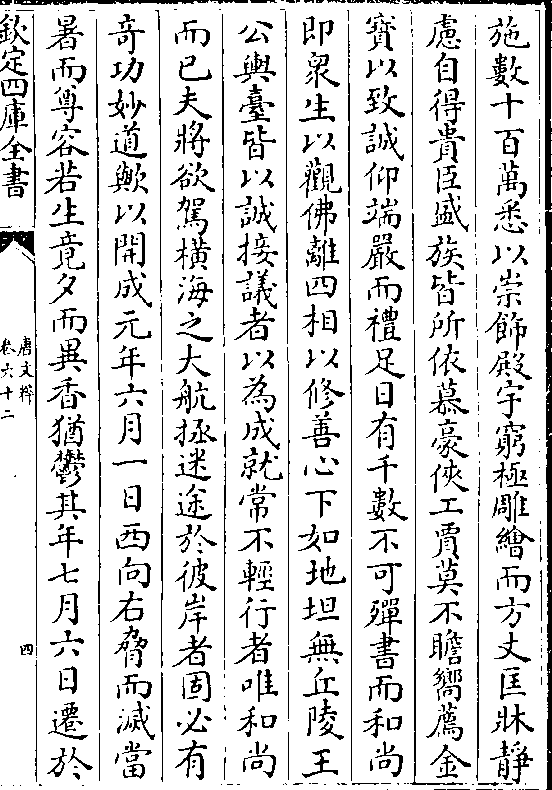 施數十百萬悉以崇飾殿宇窮極雕繪而方丈匡牀靜
慮自得貴臣盛族皆所依慕豪俠工賈莫不瞻嚮薦金
寳以致誠仰端嚴而禮足日有千數不可殫書而和尚
即衆生以觀佛離四相以修善心下如地坦無丘陵王
公輿臺皆以誠接議者以為成就常不輕行者唯和尚
而已夫將欲駕橫海之大航拯迷途於彼岸者固必有
奇功妙道歟以開成元年六月一日西向右脅而滅當
暑而尊容若生竟夕而異香猶鬱其年七月六日遷於
欽定四庫全書
唐文粹
卷六十二
四